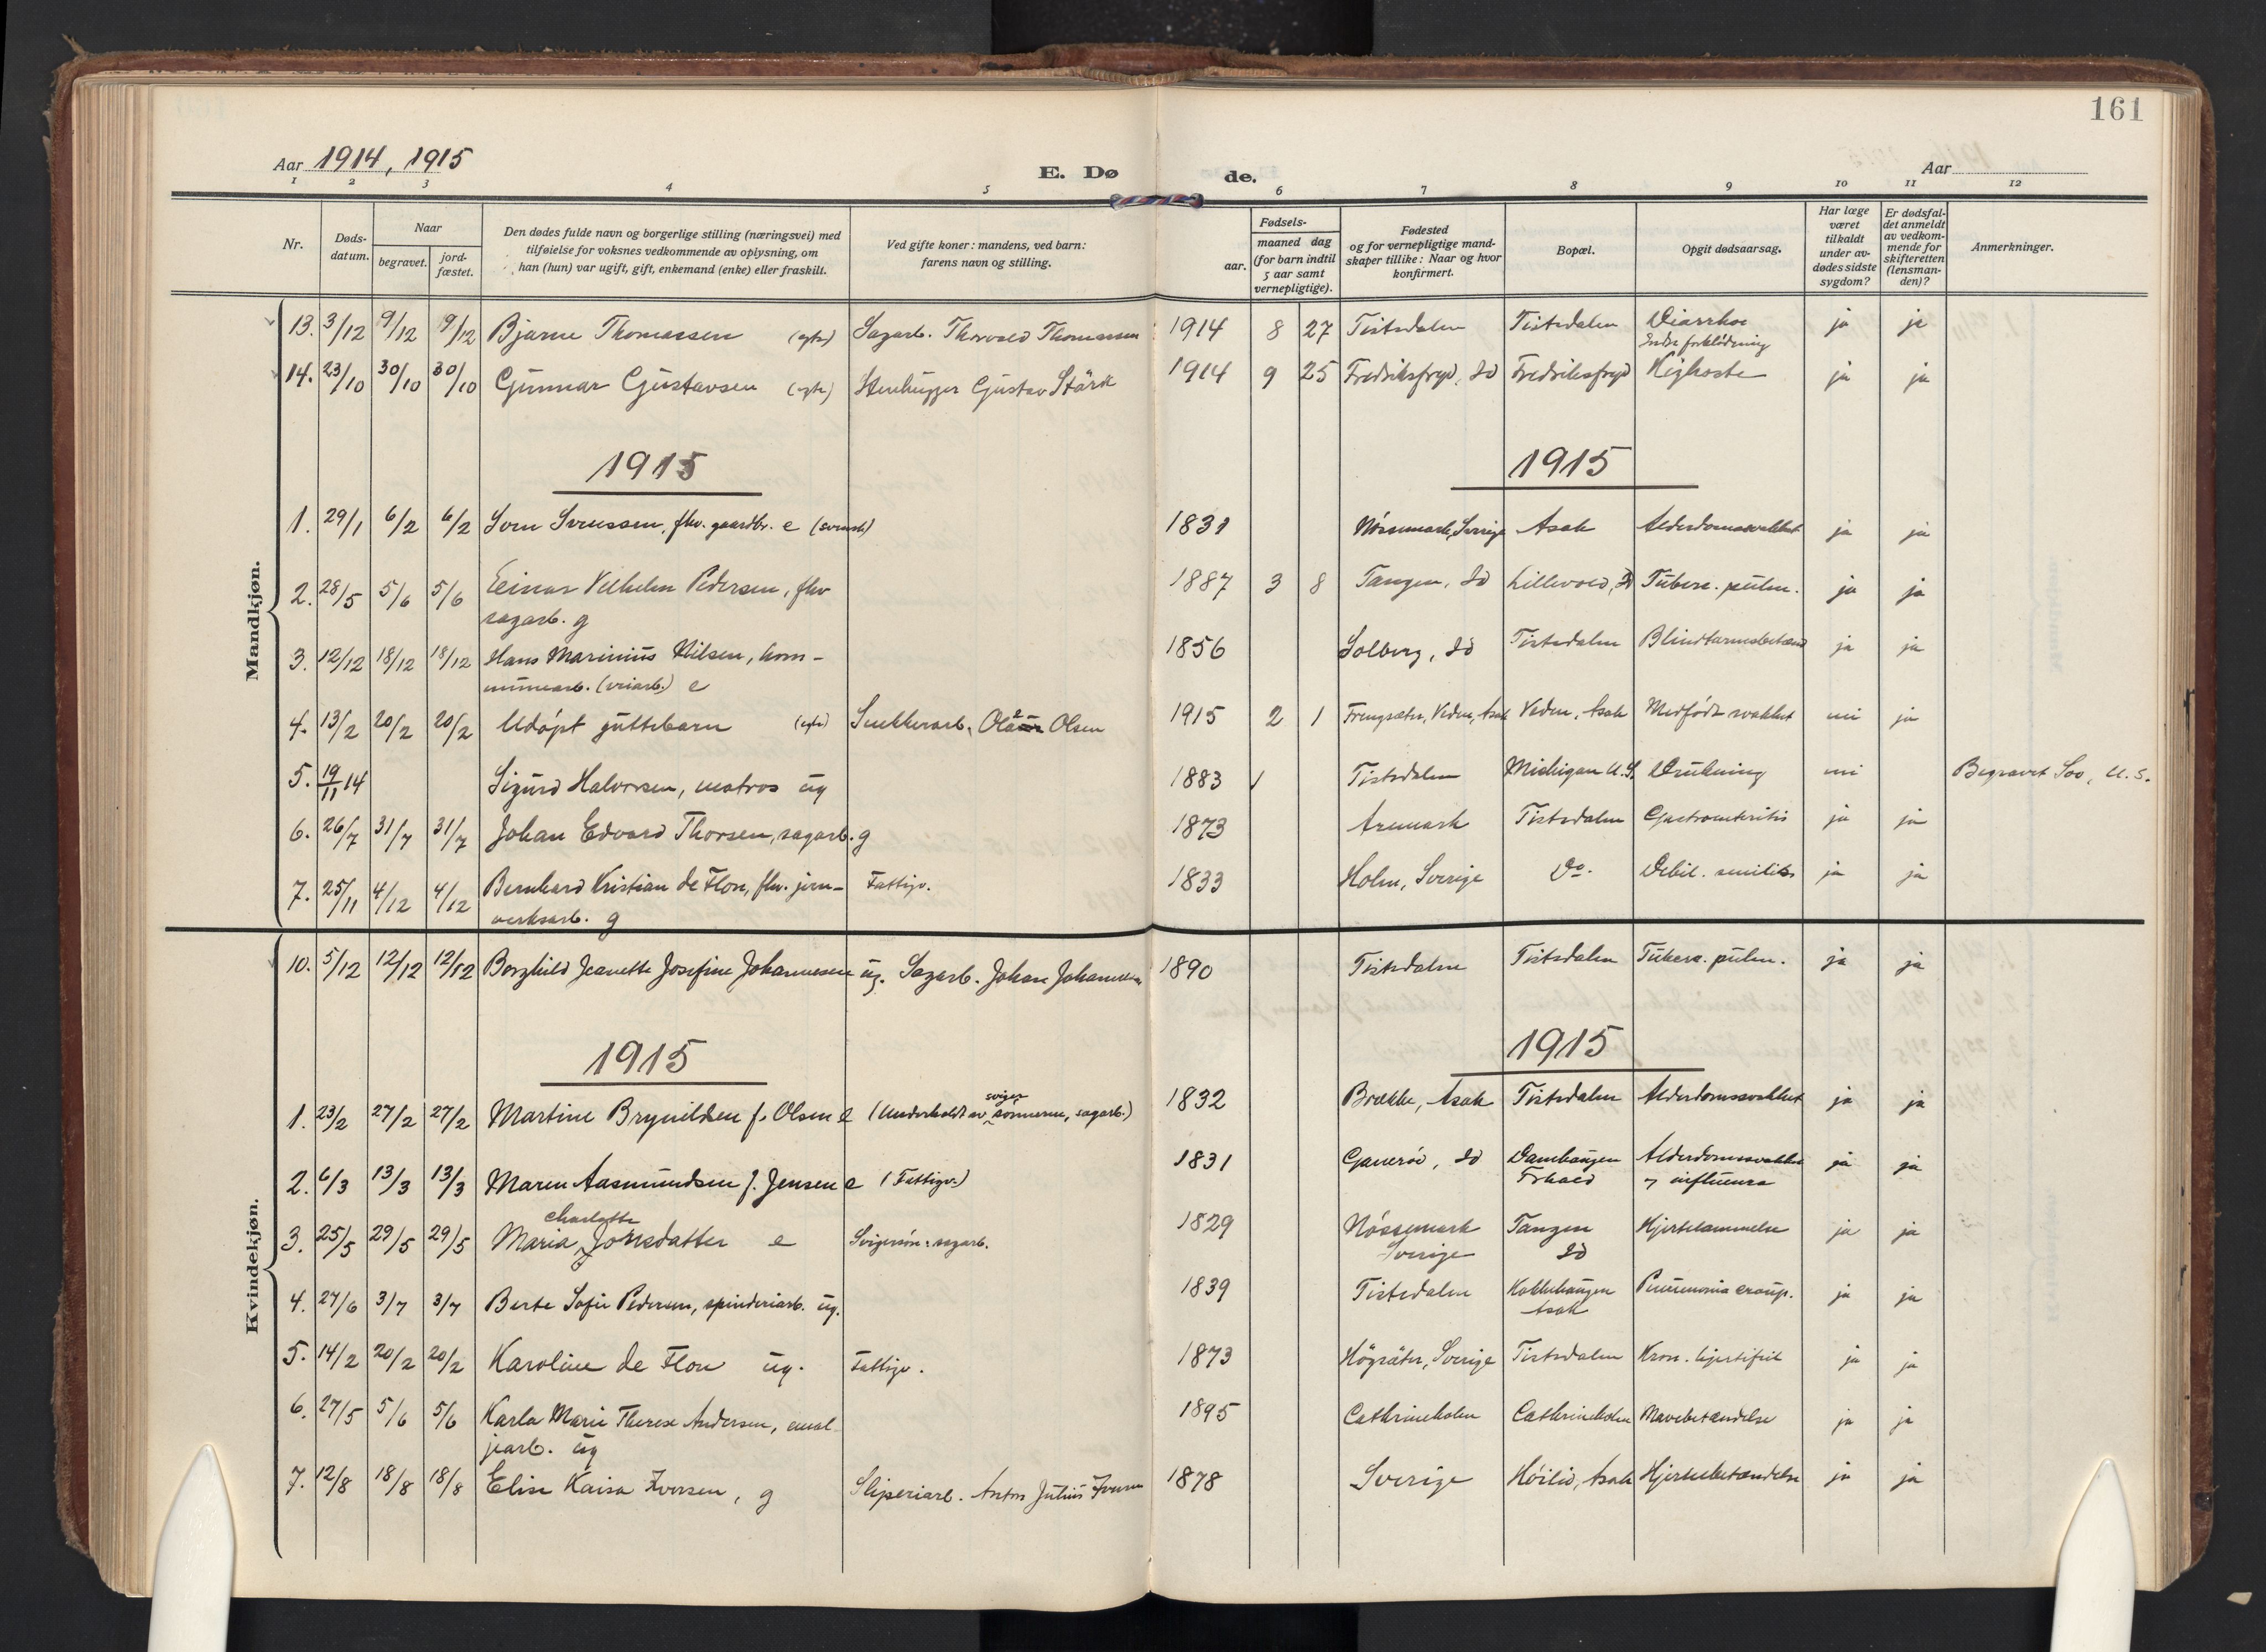 161
Aar 1914, 1915
E. Dø de.
Aar
1 2 3 4 5 6 7 8 9 10 11 12
Nr.
Døds-datum.
Naar
begravet.
jord-fæstet.
Den dødes fulde navn og borgerlige stilling (næringsvei) med
tilføielse for voksnes vedkommende av oplysning, om
han (hun) var ugift, gift, enkemand (enke) eller fraskilt.
Ved gifte koner: mandens, ved barn:
farens navn og stilling.
Fødsels-
aar.
maaned dag
(for barn indtil
5 aar samt
vernepligtige).
Fødested
og for vernepligtige mand-
skaper tillike: Naar og hvor
konfirmert.
Bopæl.
Opgit dødsaarsag.
Har læge
været
tilkaldt
under av-
dødes sidste
sygdom?
Er dødsfal-
det anmeldt
av vedkom-
mende for
skifteretten
(lensman-
den)?
Anmerkninger.
Mandkjøn.
13. 3/12 9/12 9/12 Bjarne Thomassen (egte) Sagarb. Thorvald Thomassen 1914 8 27 Tistedalen Tistedalen Diarrhoe ja ja
Indre forblødning
14. 23/10 30/10 30/10 Gunnar Gustavsen (egte) Stenhugger Gustav Stärk 1914 9 25 Fredriksfryd, Id Fredriksfryd Kighoste ja ja
1915 1915
1. 29/1 6/2 6/2 Sven Svensson, fhv. gaardbr. e (svensk) 1831 Nössemark, Sverige Asak Alderdomssvakhet ja ja
2. 28/5 5/6 5/6 Einar Vilhelm Pedersen, fhv 1887 3 8 Tangen, Id Lillevold, Id Tuberc. pulm. ja ja
sagarb. g
3. 12/12 18/12 18/12 Hans Marinius Nilsen, kom- 1856 Solberg, Id Tistedalen Blindtarmsbetænd ja ja
munearb. (veiarb.) e
4. 13/2 20/2 20/2 Udøpt guttebarn (egte) Snekkerarb. Olaf Olsen 1915 2 1 Veden, Asak Veden, Asak Medfødt svakhet nei ja
5. 19/11 14 Sigurd Halvorsen, matros ug 1883 Tistedalen Michigan U.S. Drukning nei Begravet Soo, U.S.
6. 26/7 31/7 31/7 Johan Edvard Thorsen, sagarb. g 1873 Aremark Tistedalen Gastroenteritis ja ja
7. 25/11 4/12 4/12 Bernhard Kristian de Flon, fhv. jern- Fattigv. 1833 Holm, Sverige Do. Debil. senilis ja ja
verksarb. g
Kvindekjøn.
10. 5/12 12/12 12/12 Borghild Jeanette Josefine Johannesen ug. Sagarb. Johan Johannesen 1890 Tistedalen Tistedalen Tuberc. pulm. ja ja
1915 1915
1. 23/2 27/2 27/2 Martine Brynildsen f. Olsen e (Underholdt av svigersønnerne, sagarb.) 1832 Brække, Asak Tistedalen Alderdomssvakhet ja ja
2. 6/3 13/3 13/3 Maren Aasmundsen f. Jensen e (Fattigv.) 1831 Ganerød, Id Damhaugen Alderdomssvakhet ja ja
& influenza
3. 25/5 29/5 29/5 Maria Charlotte Jonsdatter e Svigersøn: sagarb. 1829 Nössemark Tangen Hjertelammelse ja ja
Sverige Id
4. 27/6 3/7 3/7 Berte Sofie Pedersen, spinderiarb. ug. 1839 Tistedalen Kokkehaugen Pneumonia croup. ja ja
Asak
5. 14/2 20/2 20/2 Karoline de Flon ug. Fattigv. 1873 Högsäter, Sverige Tistedalen Kron. hjertefeil ja ja
6. 27/5 5/6 5/6 Karla Marie Therese Andersen, emal- 1895 Cathrineholm Cathrineholm Mavebetændelse ja ja
jearb. ug
7. 12/8 18/8 18/8 Elise Kaisa Iversen, g Sliperiarb. Anton Julius Iversen 1878 Sverige Høilid, Asak Hjertebetændelse ja ja